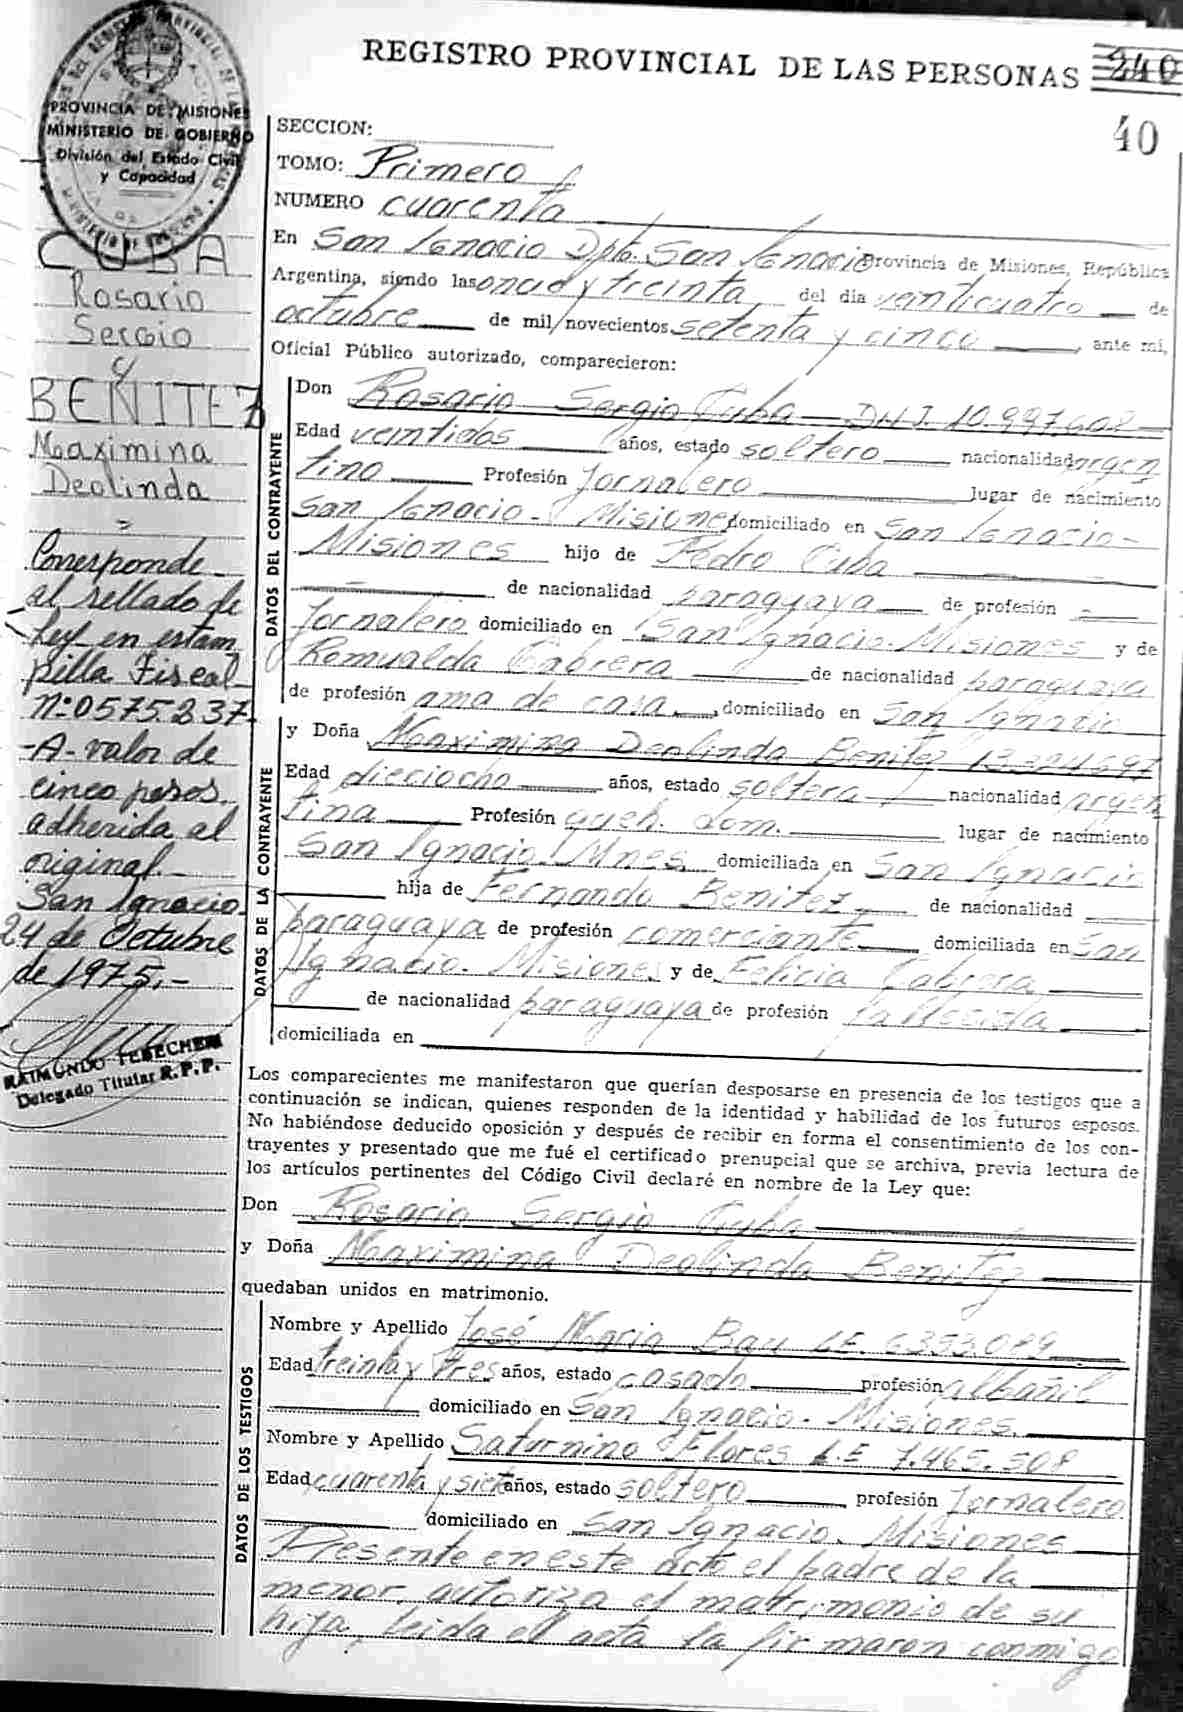 REGISTRO PROVINCIAL DE LAS PERSONAS 240
40
PROVINCIA DE MISIONES
MINISTERIO DE GOBIERNO
División del Estado Civil
y Capacidad
CUBA
Rosario
Sergio
y
BENITEZ
Maximina
Deolinda
=
Corresponde
al sellado de
Ley en estam
pilla Fiscal
Nº 0575237
-A- valor de
cinco pesos.
adherida al
original.-
San Ignacio.
24 de Octubre
de 1975.-
RAIMUNDO TEBECHERI
Delegado Titular R.P.P.
SECCION:
TOMO: Primero
NUMERO cuarenta
En San Ignacio Dpto. San Ignacio Provincia de Misiones, República
Argentina, siendo las once y treinta del día venticuatro de
octubre de mil novecientos setenta y cinco, ante mí,
Oficial Público autorizado, comparecieron:
DATOS DEL CONTRAYENTE
Don Rosario Sergio Cuba - D.N.I. 10.997.602
Edad veintidos años, estado soltero nacionalidad argen
tino Profesión Jornalero lugar de nacimiento
San Ignacio - Misiones domiciliado en San Ignacio -
Misiones hijo de Pedro Cuba
de nacionalidad paraguaya de profesión
Jornalero domiciliado en San Ignacio. Misiones y de
Romualda Cabrera de nacionalidad paraguaya
de profesión ama de casa, domiciliado en San Ignacio
DATOS DE LA CONTRAYENTE
y Doña Maximina Deolinda Benitez 13.324.697
Edad dieciocho años, estado soltera nacionalidad argen
tina Profesión queh. dom. lugar de nacimiento
San Ignacio. Mnes. domiciliada en San Ignacio
hija de Fernando Benitez, de nacionalidad
paraguaya de profesión comerciante domiciliada en San
Ignacio. Misiones y de Felicia Cabrera
de nacionalidad paraguaya de profesión fallecida
domiciliada en
Los comparecientes me manifestaron que querían desposarse en presencia de los testigos que a
continuación se indican, quienes responden de la identidad y habilidad de los futuros esposos.
No habiéndose deducido oposición y después de recibir en forma el consentimiento de los con-
trayentes y presentado que me fué el certificado prenupcial que se archiva, previa lectura de
los artículos pertinentes del Código Civil declaré en nombre de la Ley que:
Don Rosario Sergio Cuba
y Doña Maximina Deolinda Benitez
quedaban unidos en matrimonio.
DATOS DE LOS TESTIGOS
Nombre y Apellido José Maria Bau L.E. 6353.089
Edad treinta y tres años, estado casado profesión albañil
domiciliado en San Ignacio. Misiones.
Nombre y Apellido Saturnino Flores L.E 7.465.508
Edad cuarenta y siete años, estado soltero profesión Jornalero
domiciliado en San Ignacio. Misiones
Presente en este acto el padre de la
menor, autoriza el matrimonio de su
hija, leida el acta la firmaron conmigo